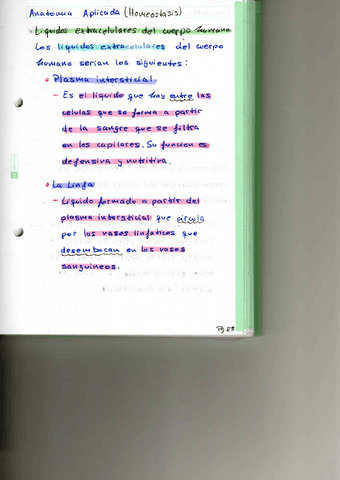 Anatomia Aplicada (Homeostasis)
Liquidos extracelulares del cuerpo humano
Los liquidos extracelulares del cuerpo
humano serian los siguientes:
Plasma intersticial
- Es el liquido que hay entre las
celulas que se forma a partir
de la sangre que se filtra
en los capilares. Su funcion es
defensiva y nutritiva.
La Linfa
- Liquido formado a partir del
plasma intersticial que circula
por los vasos linfaticos que
desembocan en los vasos
sanguineos.
Pg 23